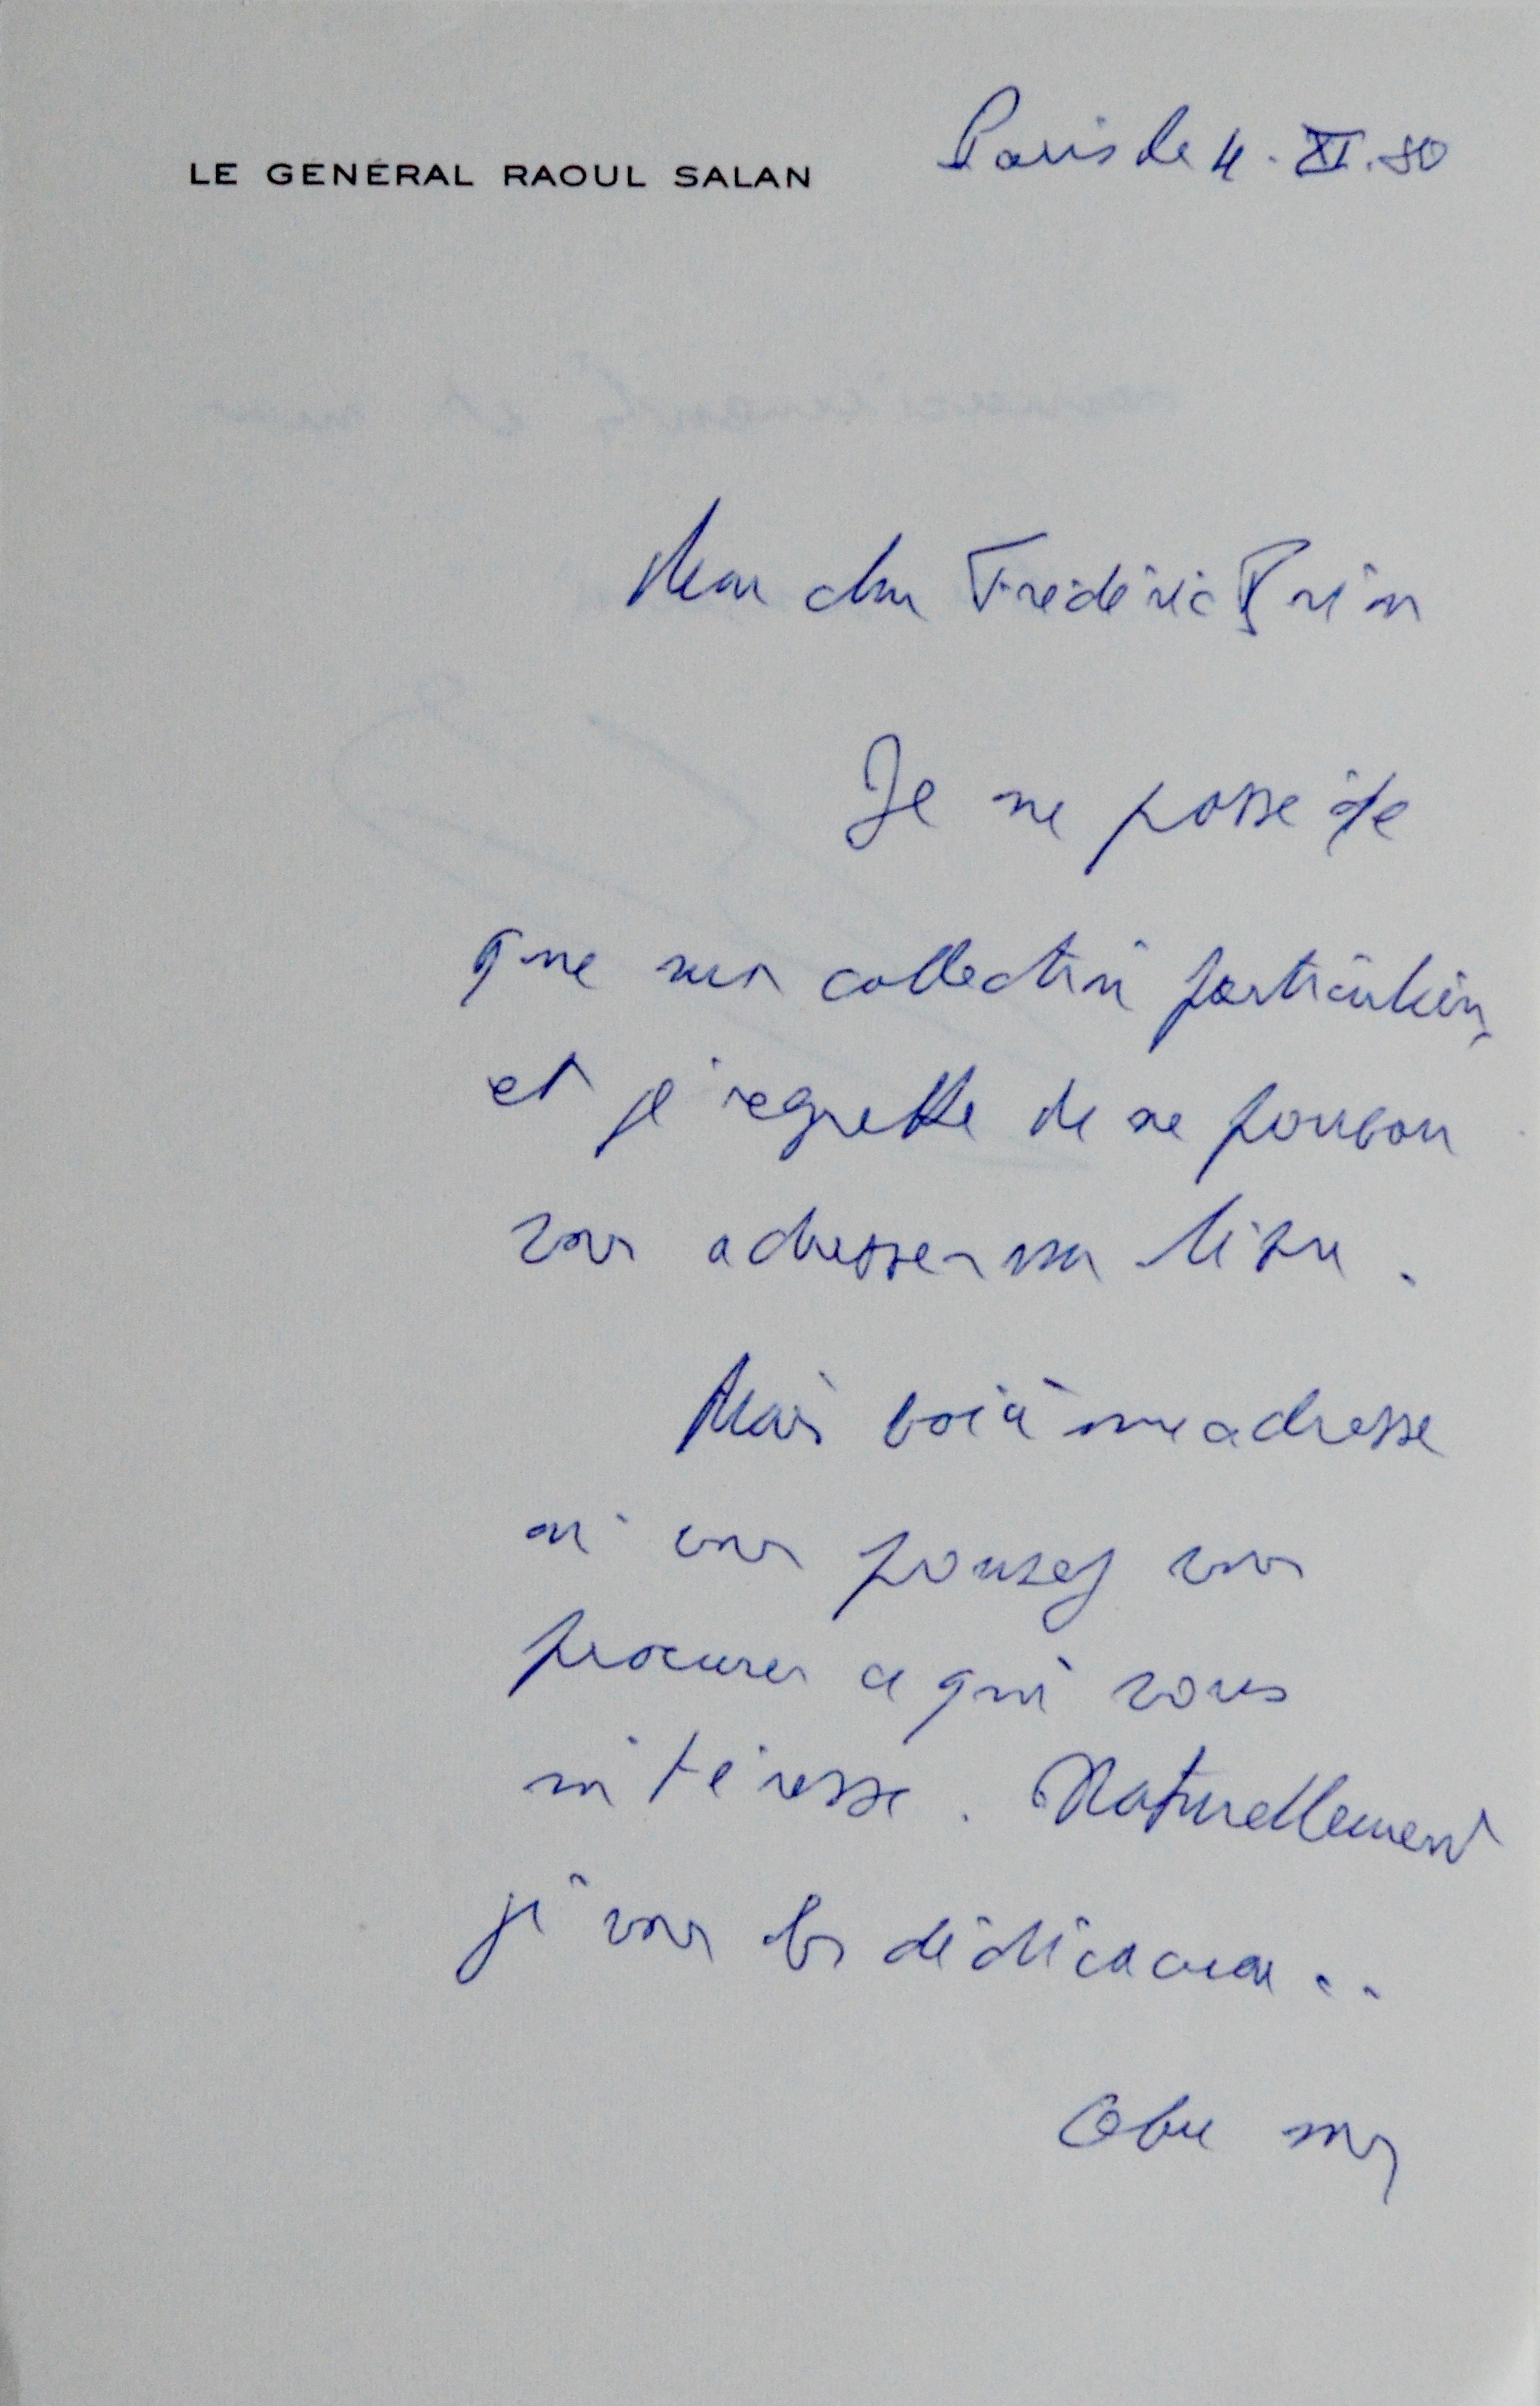 LE GENÉRAL RAOUL SALAN
Paris le 4. XI. 80
Mon cher Frédéric
Je ne possède
que ma collection particulière
et je regrette de ne pouvoir
vous adresser un livre.
Mais voici une adresse
où vous pouvez vous
procurer ce qui vous
intéresse. Naturellement
je vous les dédicacerai..